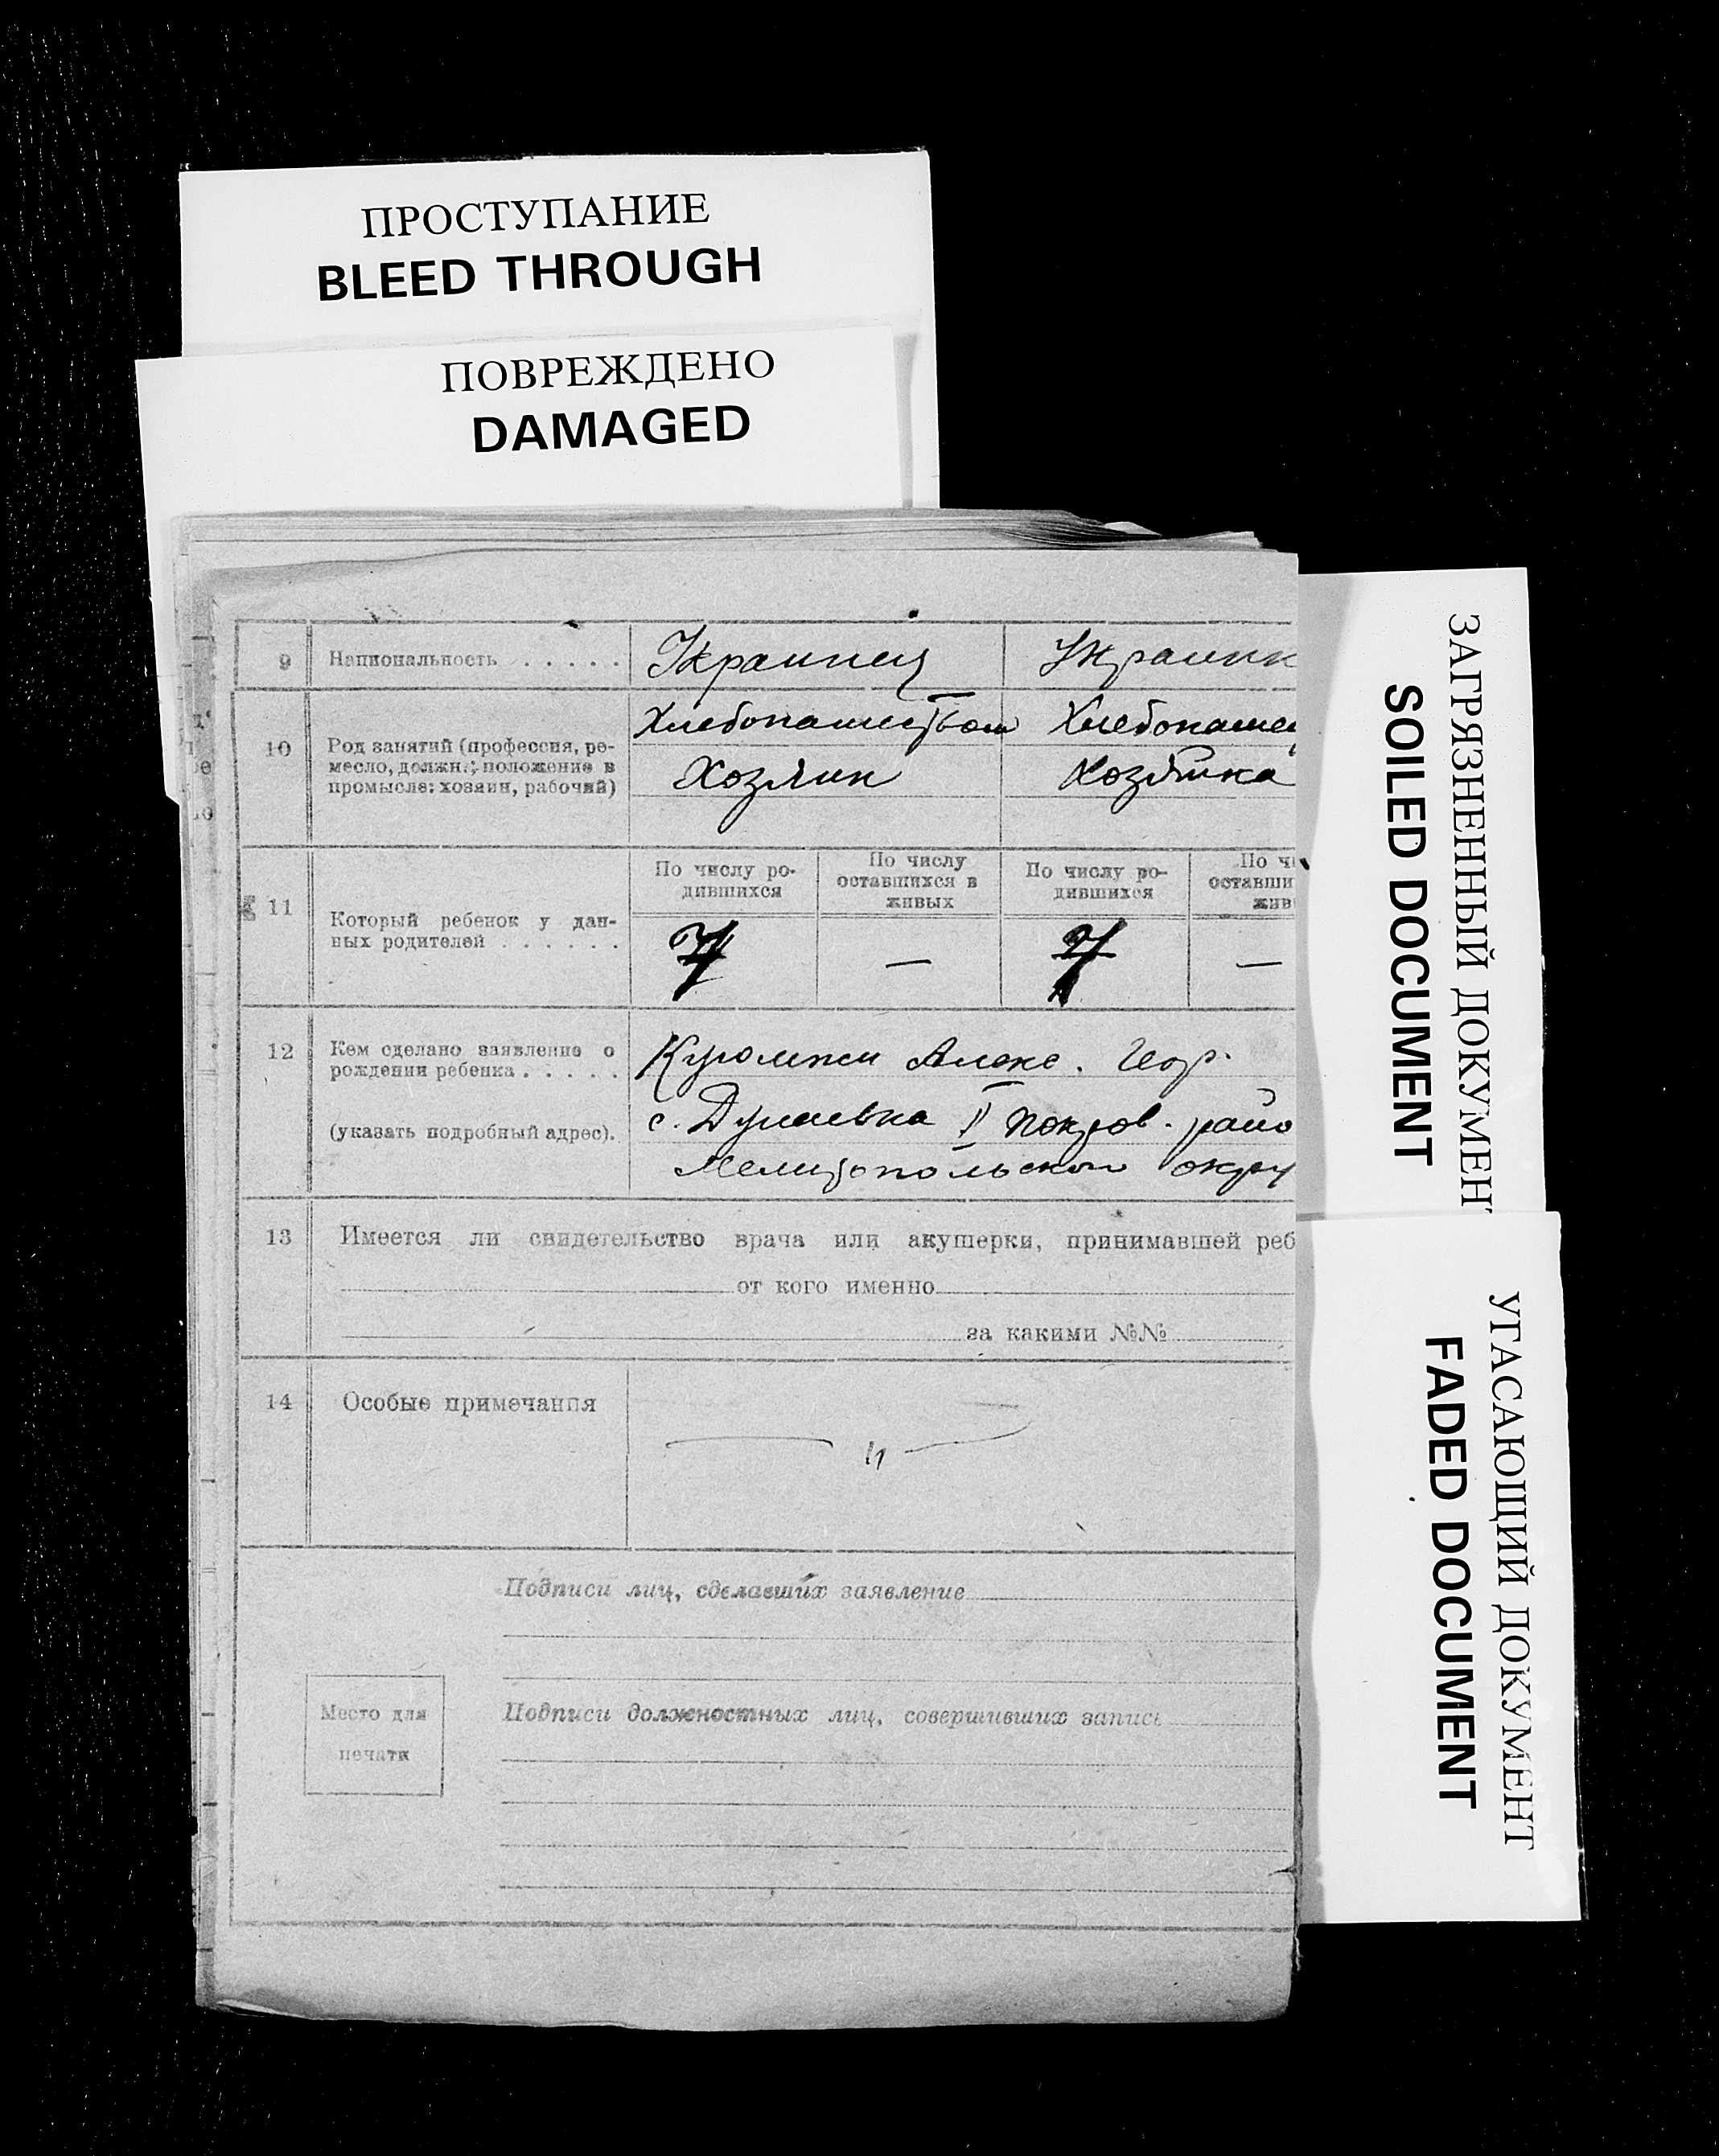 ПРОСТУПАНИЕ
BLEED THROUGH
ПОВРЕЖДЕНО
DAMAGED
9 Национальность . . . . . Украинец Украинк
10 Род занятий (профессия, ре-
месло, должн.; положение в
промысле: хозяин, рабочий)
Хлебопашеством Хлебопашес
Хозяин Хозяйка
11 Который ребенок у дан-
ных родителей . . . . . .
По числу ро-
дившихся
По числу
оставшихся в
живых
По числу ро-
дившихся
По чи
оставши
жив
7 — 7 —
12 Кем сделано заявление о
рождении ребенка . . . . .
(указать подробный адрес).
Алекс. Геор.
с. II Покров. райо
Мелитопольского окру
13 Имеется ли свидетельство врача или акушерки, принимавшей реб
от кого именно
за какими №№
14 Особые примечания
— " —
Подписи лиц, сделавших заявление
Место для
печати
Подписи должностных лиц, совершивших запись
ЗАГРЯЗНЕННЫЙ ДОКУМЕНТ
SOILED DOCUMENT
УГАСАЮЩИЙ ДОКУМЕНТ
FADED DOCUMENT